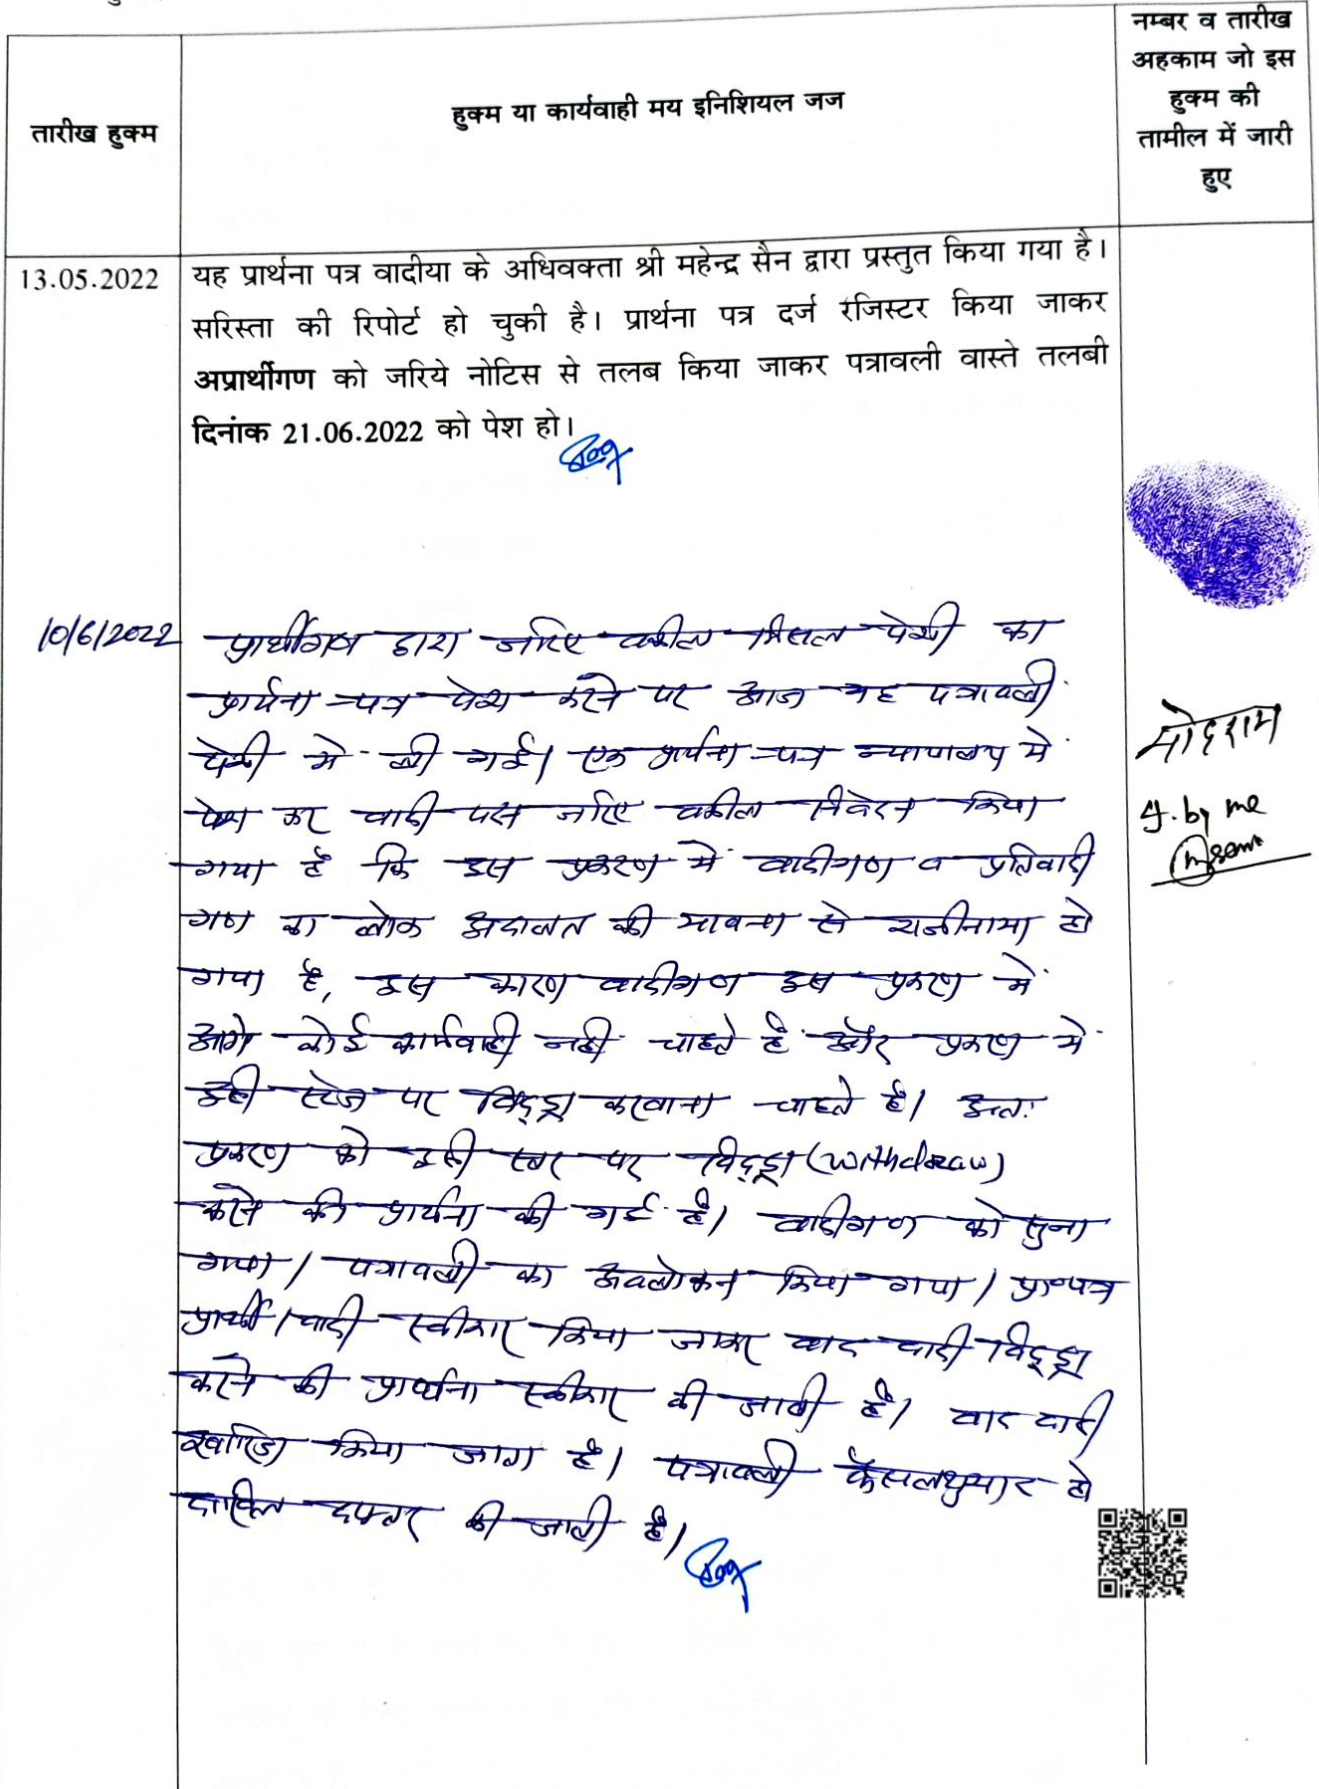 तारीख हुक्म
हुक्म या कार्यवाही मय इनिशियल जज
नम्बर व तारीख
अहकाम जो इस
हुक्म की
तामील में जारी
हुए
13.05.2022
यह प्रार्थना पत्र वादीया के अधिवक्ता श्री महेन्द्र सैन द्वारा प्रस्तुत किया गया है।
सरिस्ता की रिपोर्ट हो चुकी है। प्रार्थना पत्र दर्ज रजिस्टर किया जाकर
अप्रार्थीगण को जरिये नोटिस से तलब किया जाकर पत्रावली वास्ते तलबी
दिनांक 21.06.2022 को पेश हो।
10/6/2022
प्रार्थीगण द्वारा जरिए वकील मिसल पेशी का
प्रार्थना-पत्र पेश करने पर आज यह पत्रावली
पेशी में ली गई। एक प्रार्थना-पत्र न्यायालय में
पेश कर वादी पक्ष जरिए वकील निवेदन किया
गया है कि इस प्रकरण में वादीगण व प्रतिवादी
गण का लोक अदालत की भावना से राजीनामा हो
गया है, इस कारण वादीगण इस प्रकरण में
आगे कोई कार्यवाही नहीं चाहते हैं और प्रकरण में
इसी स्टेज पर विद्ड्रा करवाना चाहते हैं। अतः
प्रकरण को इसी स्तर पर विद्ड्रा (withdraw)
करने की प्रार्थना की गई है। वादीगण को सुना
गया। पत्रावली का अवलोकन किया गया। प्रा०पत्र
प्रार्थी/वादी स्वीकार किया जाकर वाद वादी विद्ड्रा
करने की प्रार्थना स्वीकार की जाती है। वाद वादी
खारिज किया जाता है। पत्रावली फैसलशुमार हो
दाखिल दफ्तर की जाती है।
मोदराम
by me